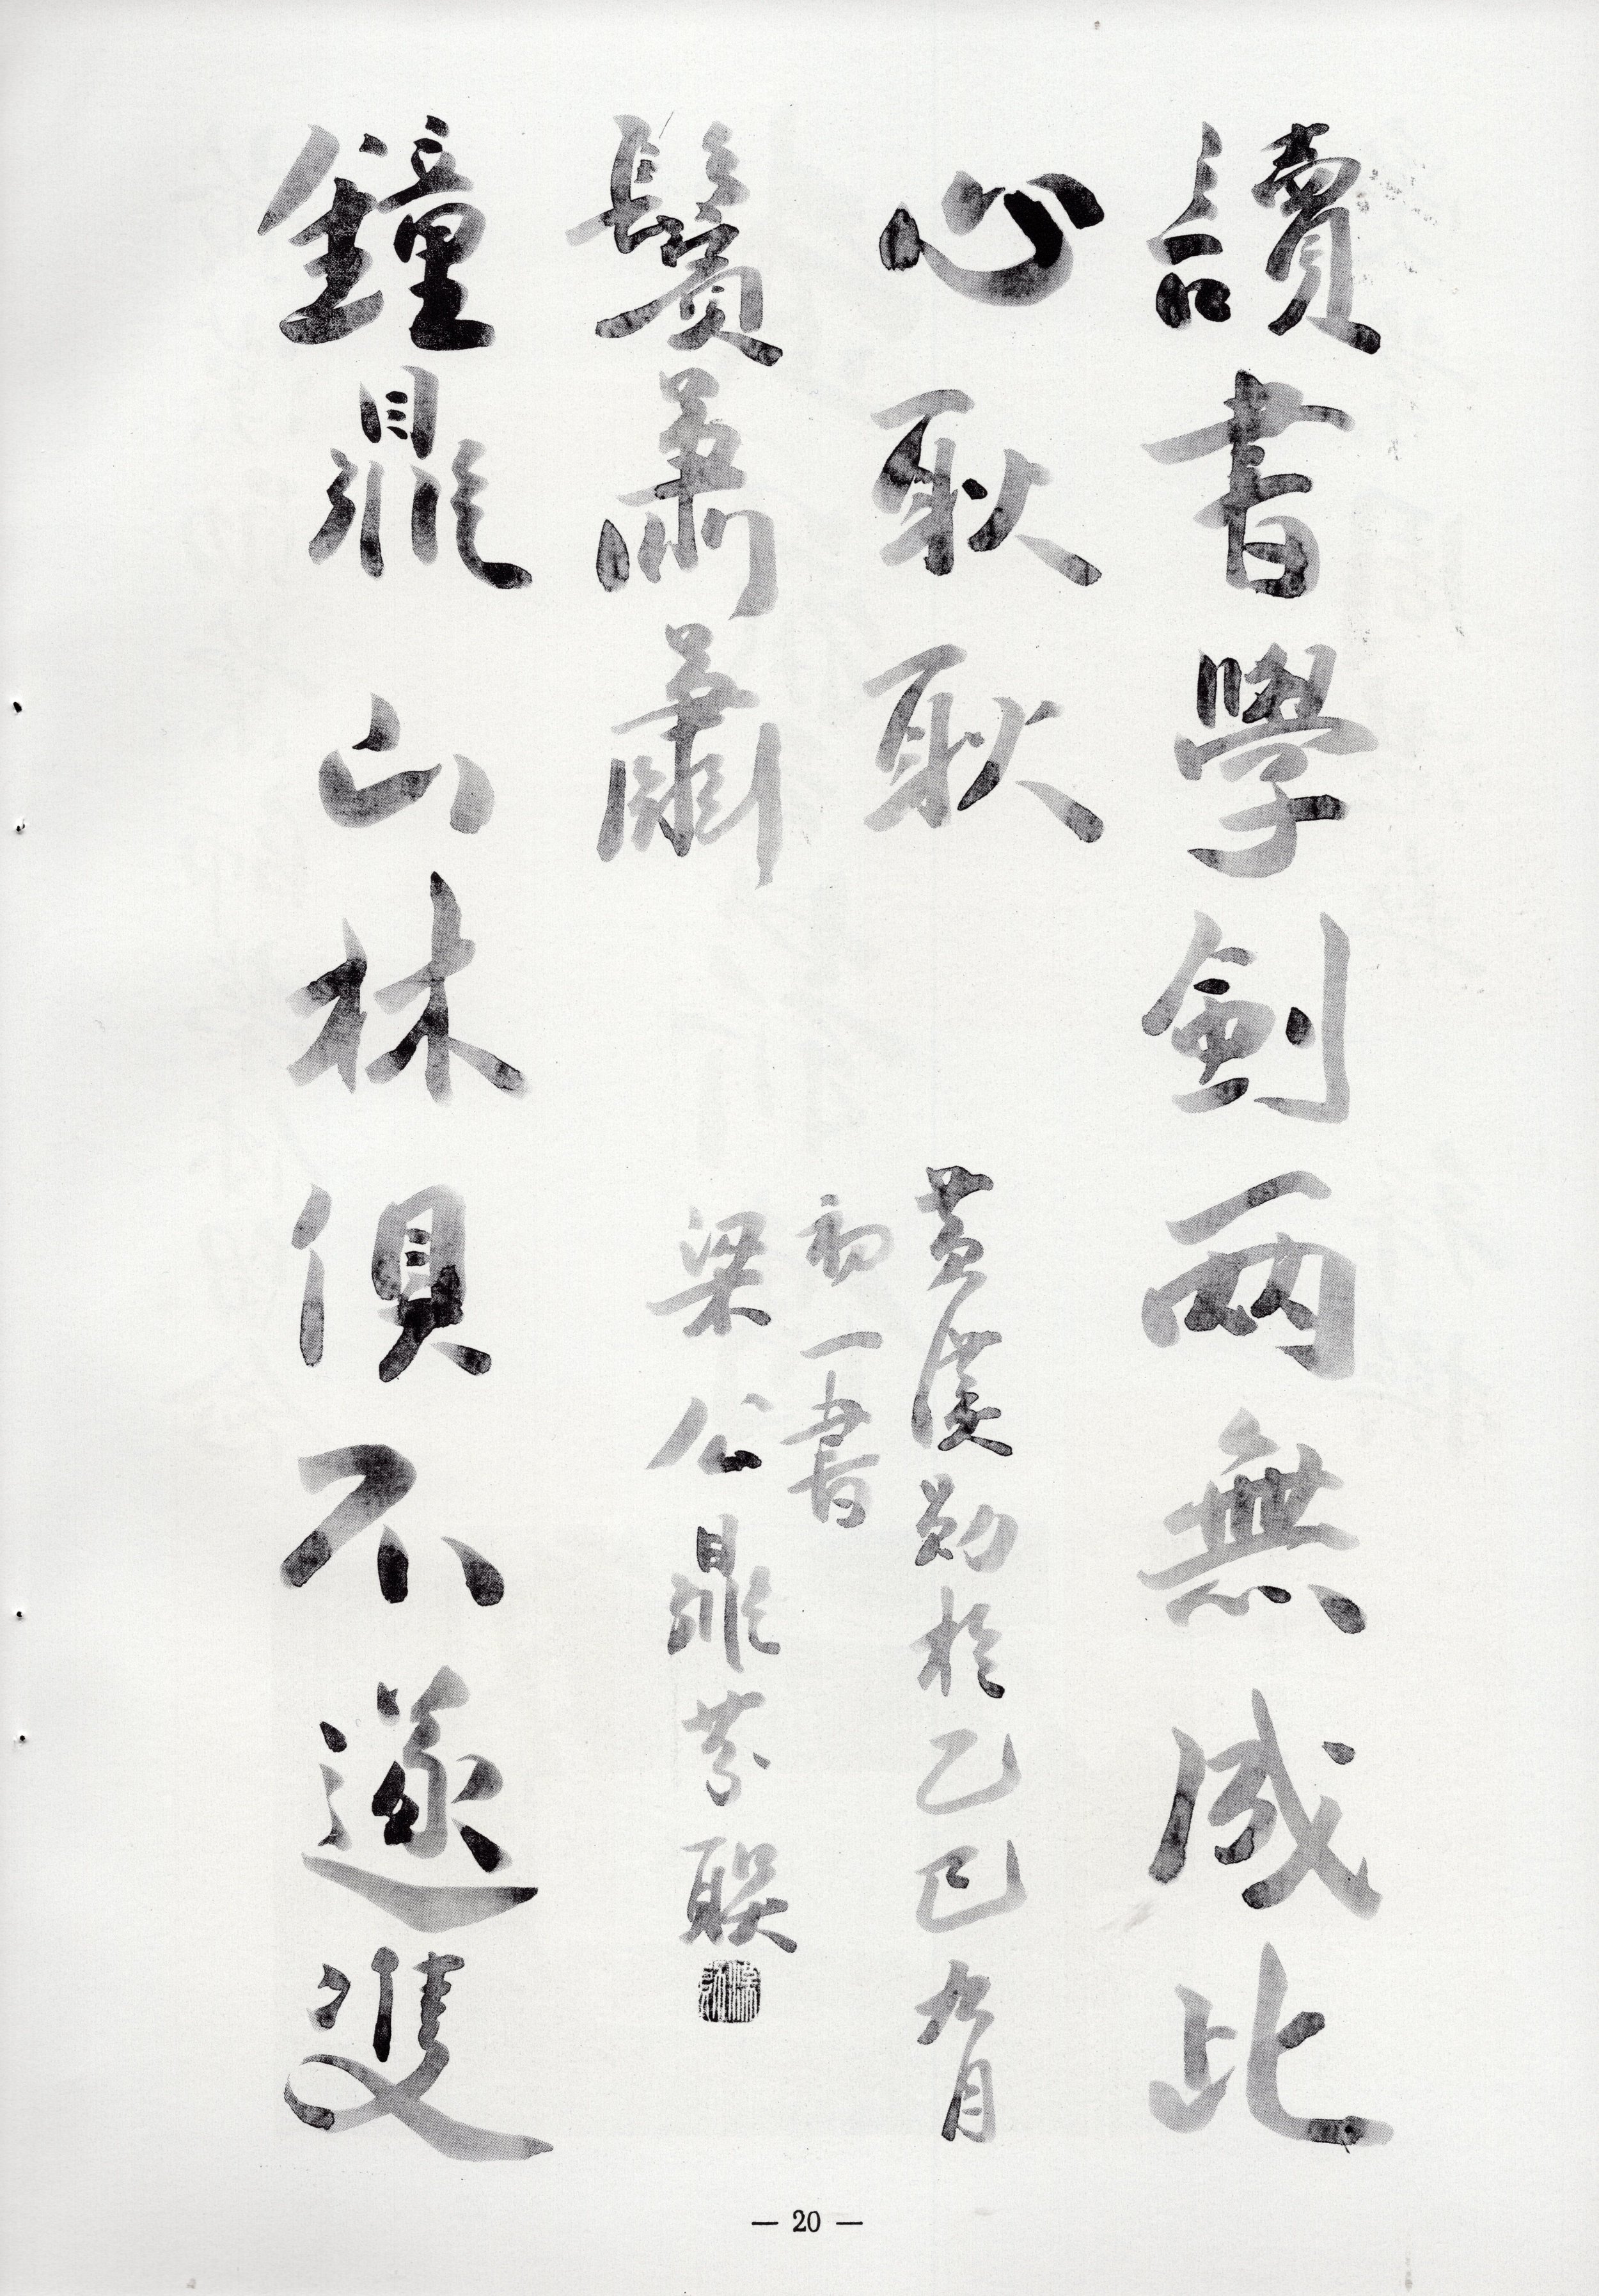 讀書學劍兩無成此
心耿耿
鐘鼎山林俱不遂雙
鬢蕭蕭
黃漢勛於乙巳九月
初一書
梁公鼎芬聯
— 20 —